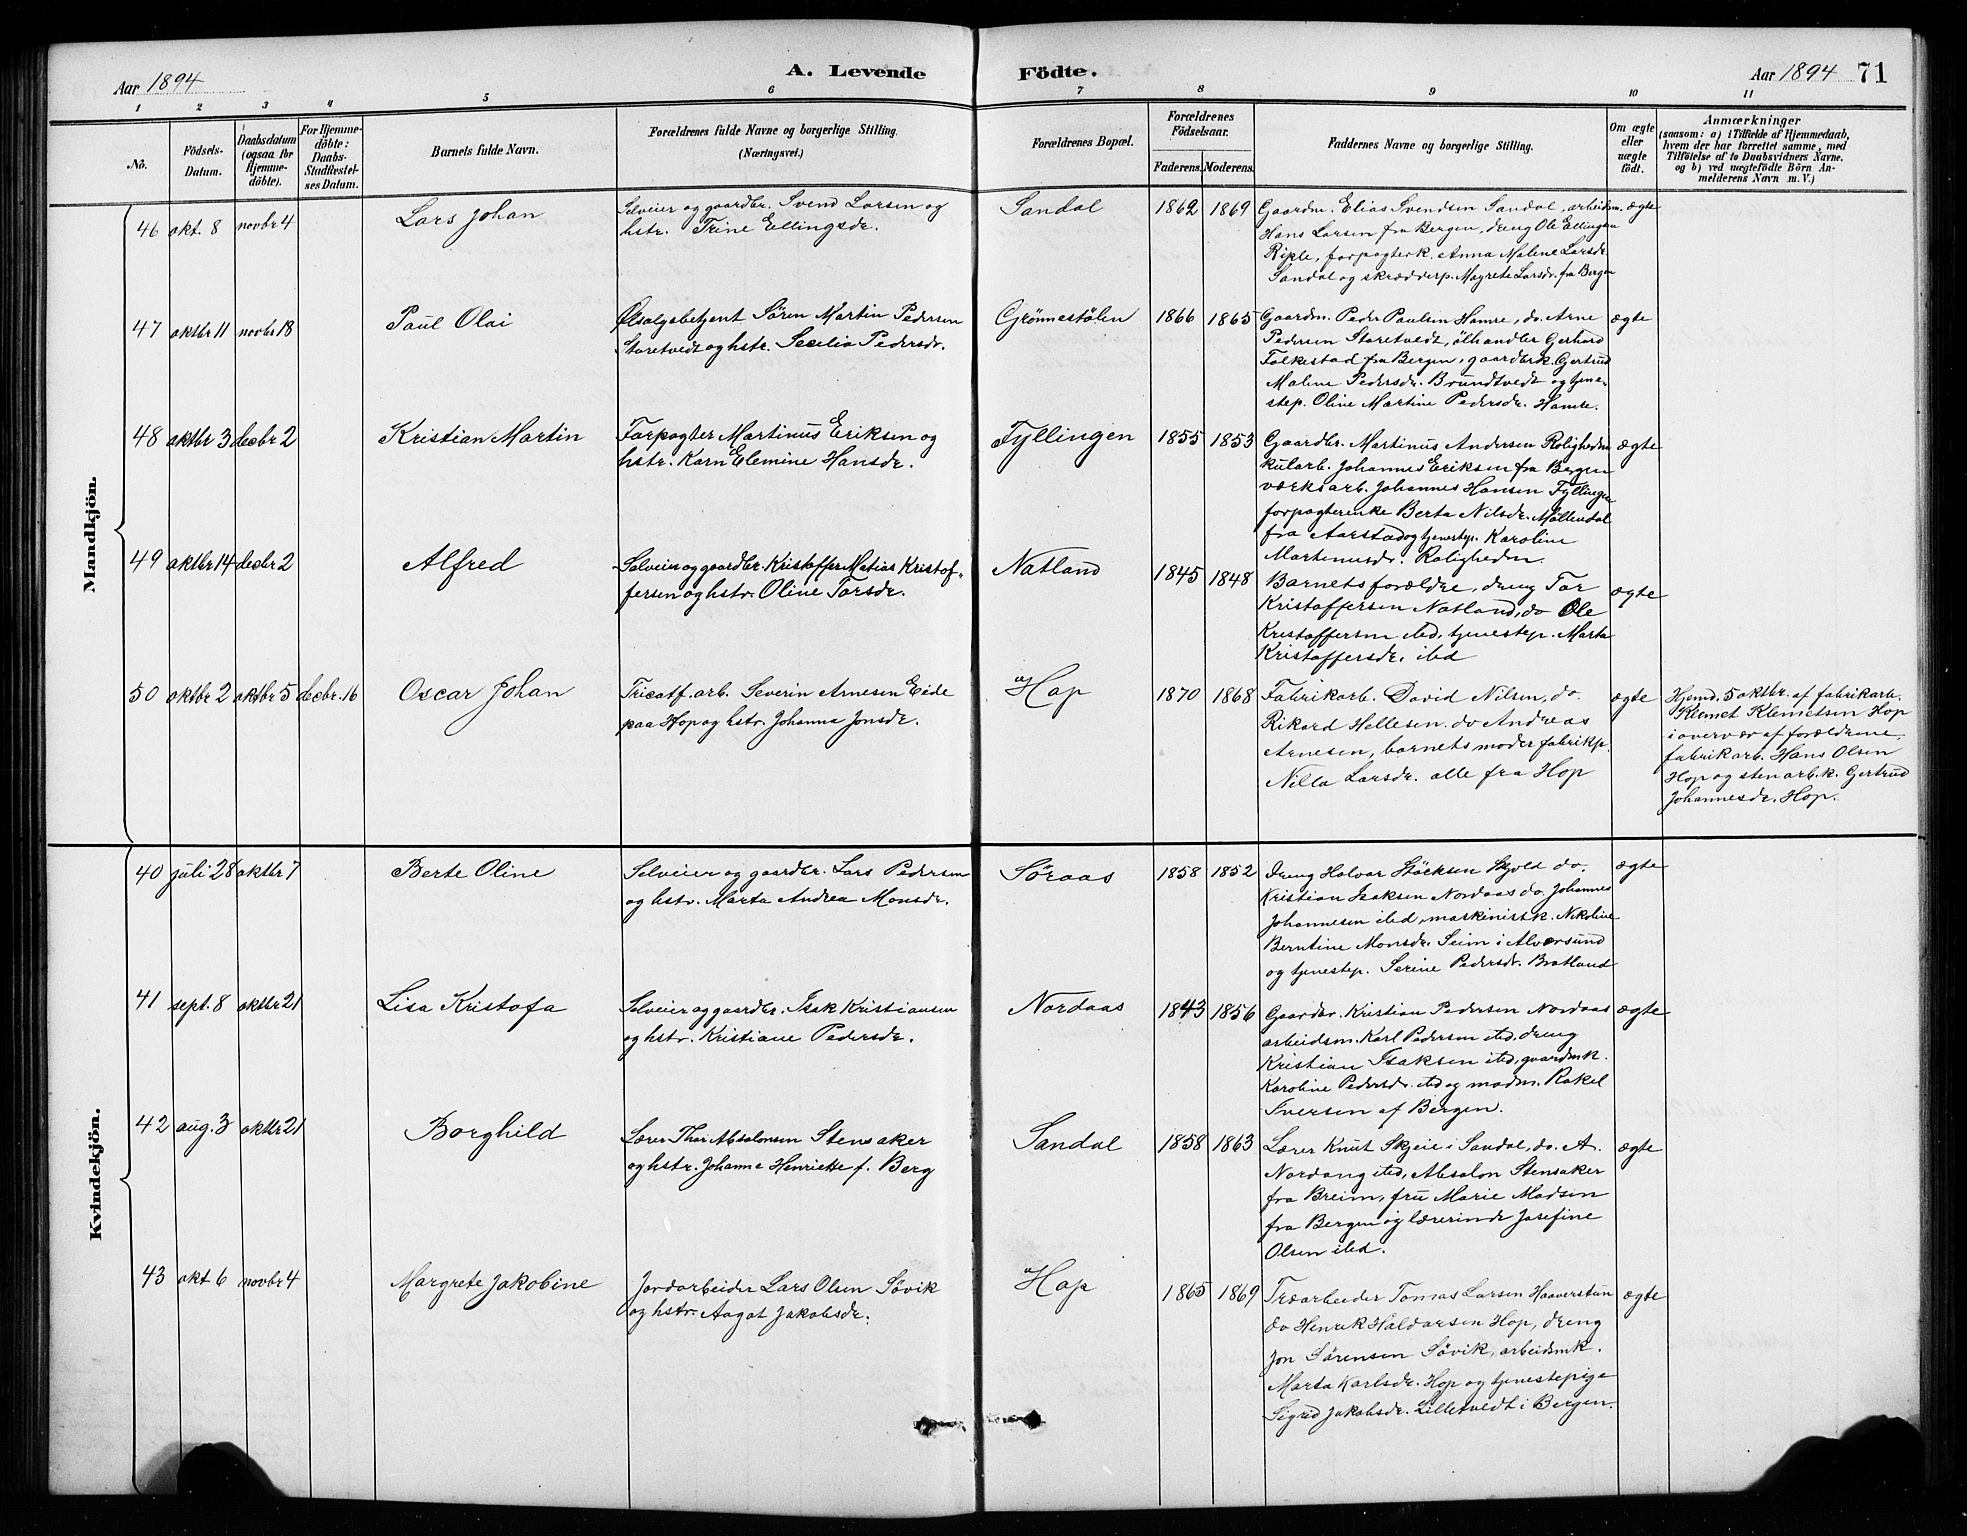 Aar 1894
A. Levende
Födte.
Aar 1894
71
1 2 3 4 5 6 7 8 9 10 11
No.
Födsels-
Datum.
Daabsdatum
(ogsaa for
Hjemme-
döbte).
For Hjemme-
döbte:
Daabs-
Stadfæstel-
ses Datum.
Barnets fulde Navn.
Forældrenes fulde Navne og borgerlige Stilling.
(Næringsvei.)
Forældrenes Bopæl.
Forældrenes
Födselsaar.
Faderens. Moderens.
Faddernes Navne og borgerlige Stilling.
Om ægte
eller
uægte
födt.
Anmærkninger
(saasom: a) i Tilfælde af Hjemmedaab,
hvem der har forrettet samme, med
Tilföielse af to Daabsvidners Navne.
og b) ved uægtefödte Börn An-
melderens Navn m. V.)
Mandkjön.
46 okt. 8 novbr 4
Lars Johan
Selveier og gaardbr. Svend Larsen og
hstr. Trine Ellingsdr.
Sandal
1862 1869
Gaardm. Elias Svendsen Sandal, arbeidsm.
Hans Larsen fra Bergen, dreng Ole Ellingsen
Riple, forpagterk. Anna Malene Larsdr.
Sandal og skrædderp. Magrete Larsdr. fra Bergen
ægte
47 oktbr 11 novbr 18
Paul Olai
Ølsalgsbetjent Sören Martin Pedersen
Storetvedt og hstr. Secilia Pedersdr.
Grönnestölen
1866 1865
Gaardm. Peder Paulsen Hamre, do. Arne
Pedersen Storetvedt, ölhandler Gerhard
Folkestad fra Bergen, gaardbrk. Gertrud
Maline Pedersdr. Brundtvedt og tjene-
step. Oline Martine Pedersdr. Hamre.
ægte
48 oktbr 3 decbr 2
Kristian Martin
Forpagter Martinus Eriksen og
hstr. Karn Elemine Hansdr.
Fyllingen
1855 1853
Gaardbr. Martinus Andersen Roligheden
kularb. Johannes Eriksen fra Bergen
værksarb. Johannes Hansen Fyllingen
forpagterenke Berta Nilsdr. Möllendal
fra Aarstad og tjenestep. Karoline
Martinusdr. Roligheden.
ægte
49 oktbr 14 decbr 2
Alfred
Selveier og gaardbr. Kristoffer Matias Kristof-
fersen og hstr. Oline Torsdr.
Natland
1845 1848
Barnets forældre, dreng Tor
Kristoffersen Natland, do Ole
Kristoffersen ibd, tjenestep. Marta
Kristoffersdr. ibd
ægte
50 oktbr 2 oktbr 5 decbr. 16
Oscar Johan
Tricotf. arb. Severin Arnesen Eide
paa Hop og hstr. Johanna Jonsdr.
Hop
1870 1868
Fabrikarb. David Nilsen, do.
Rikard Hellesen. do Andreas
Arnesen, barnets moder fabrikp.
Nilla Larsdr. alle fra Hop
ægte
Hjemd. 5 oktbr. af fabrikarb.
Klemet Klemetsen Hop
i overvær af forældrene,
fabrikarb. Hans Olsen
Hop og stenarb.k. Gertrud
Johannesdr. Hop.
Kvindekjön.
40 juli 28 oktbr 7
Berte Oline
Selveier og gaardbr. Lars Pedersen
og hstr. Marta Andrea Monsdr.
Söraas
1858 1852
Dreng Halvar Stöcksen Skjold do.
Kristian Isaksen Nordaas do. Johannes
Johannesen ibd, maskinistk. Nikoline
Berntine Monsdr. Seim i Alversund
og tjenestep. Serine Pedersdr. Bratland
ægte
41 sept. 8 oktbr 21
Lisa Kristofa
Selveier og gaardbr. Isak Kristiansen
og hstr. Kristiane Pedersdr.
Nordaas
1843 1856
Gaardbr. Kristian Pedersen Nordaas
arbeidsm. Karl Pedersen ibd, dreng
Kristian Isaksen ibd, gaardmk.
Karoline Pedersdr. ibd og madm. Rakel
Iversen af Bergen.
ægte
42 aug. 3 oktbr 21
Borghild
Lærer Thor Absalonsen Stensaker
og hstr. Johanna Henriette f. Berg
Sandal
1858 1863
Lærer Knut Skjeie i Sandal, do. A.
Nordang ibd, Absalon Stensaker
fra Breim, fru Marie Madsen
fra Bergen og lærerinde Josefine
Olsen ibd.
ægte
43 okt 6 novbr 4
Margrete Jakobine
Jordarbeider Lars Olsen Sövik
og hstr. Aagot Jakobsdr.
Hop
1865 1869
Træarbeider Tomas Larsen Haaverstun
do Henrik Haldorsen Hop, dreng
Jon Sörensen Sövik, arbeidsmk.
Marta Karlsdr. Hop og tjenestepige
Sigrid Jakobsdr. Lilletvedt i Bergen.
ægte